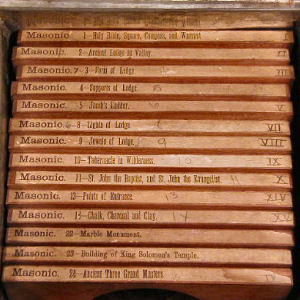 Masonic. 1-Holy Bible, Square, Compass, and Warrant I
Masonic. 2-Ancient Lodge in Valley. II
Masonic. 3-Form of Lodge III
Masonic. 4-Supports of Lodge.
Masonic. 5-Jacob's Ladder. V
Masonic. 8-Lights of Lodge VII
Masonic. 9-Jewels of Lodge. 9 VIII
Masonic. 10-Tabernacle in Wilderness. 10 IX
Masonic. 11-St. John the Baptist, and St. John the Evangelist. 11 X
Masonic. 13-Points of Entrance. 13 XIV
Masonic. 14-Chalk, Charcoal and Clay. XV
Masonic. 22-Marble Monument.
Masonic. 23-Building of King Solomon's Temple.
Masonic. 24-Ancient Three Grand Masters.